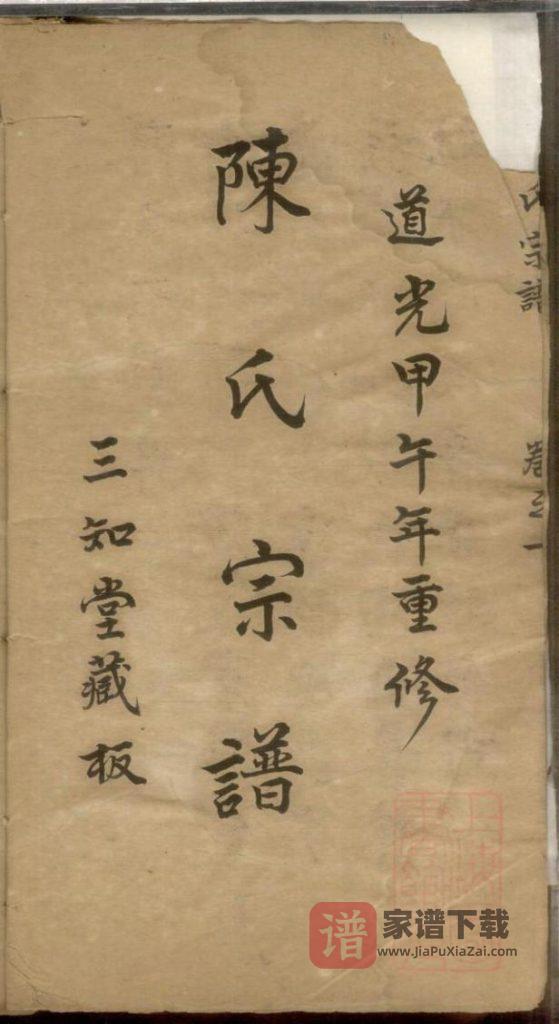 氏宗譜 卷之一
道光甲午年重修
陳氏宗譜
三知堂藏板
谱 家谱下载
www.JiaPuXiaZai.com